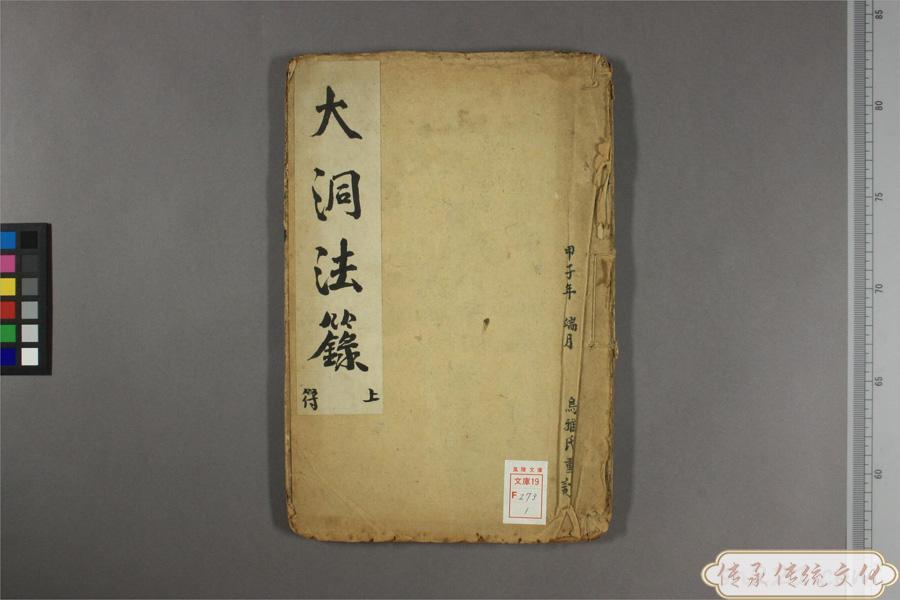 大洞法籙
上
符
甲子年 端月
烏雅氏重訂
風陵文庫
文庫19
F273
1
85
80
75
70
65
60
传承传统文化